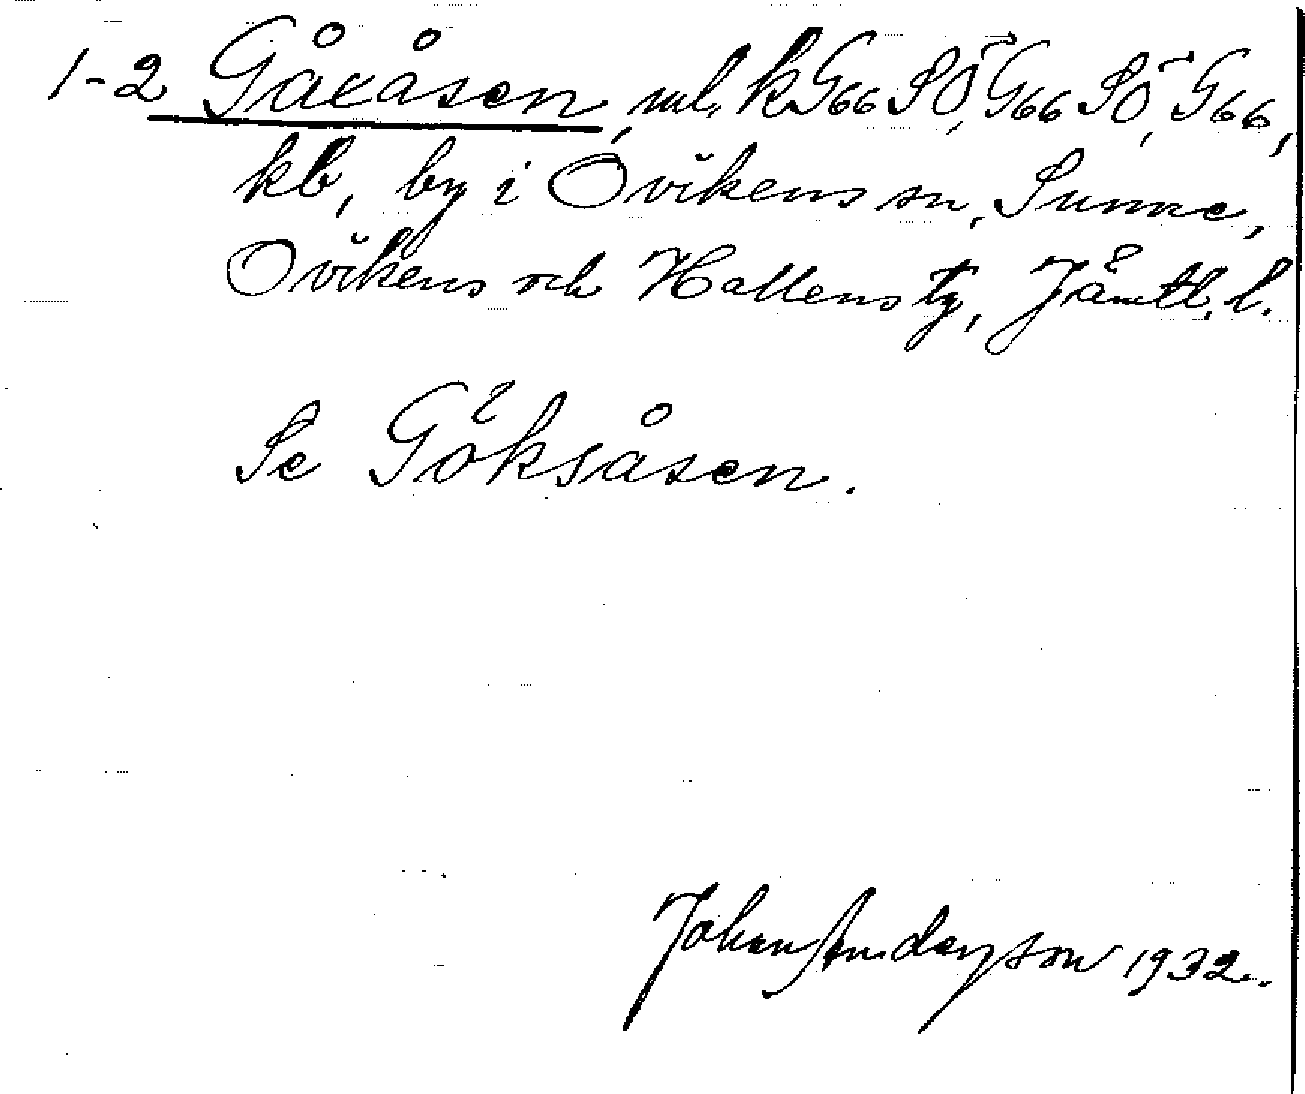 1-2 Gåxåsen, ml. k G66 SÖ, G66 SÖ, G66,
kb, by i Ovikens sn, Sunne,
Ovikens och Hallens tg, Jämtl. l.
Se Göksåsen.
Johan Anderson 1932.